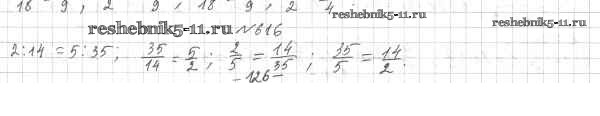 18 9 ; 2 9 ; 18 9 ; 2 4
reshebnik5-11.ru
reshebnik5-11.ru №616 reshebnik5-11.ru
2:14 = 5:35; 35/14 = 5/2; 2/5 = 14/35; 35/5 = 14/2.
-126-